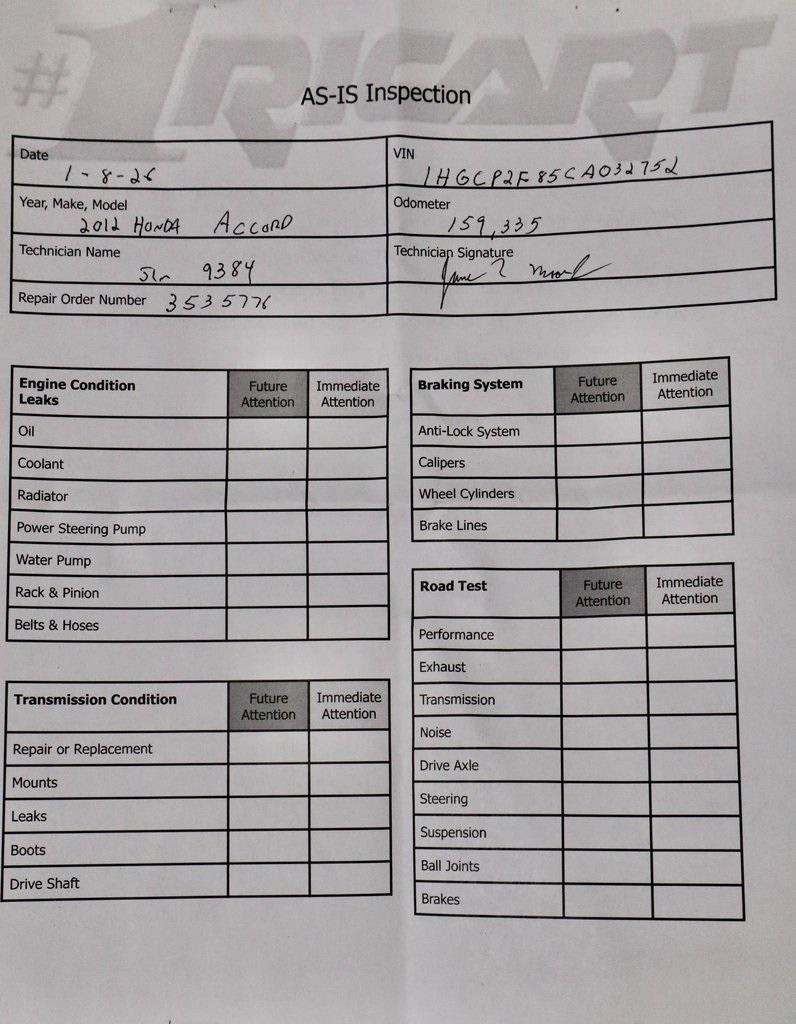 #1 RICART
AS-IS Inspection
Date 1-8-26
VIN 1HGCP2F85CA032752
Year, Make, Model 2012 HONDA ACCORD
Odometer 159,335
Technician Name 9384
Technician Signature
Repair Order Number 3535776
Engine Condition Leaks
Future Attention
Immediate Attention
Oil
Coolant
Radiator
Power Steering Pump
Water Pump
Rack & Pinion
Belts & Hoses
Transmission Condition
Future Attention
Immediate Attention
Repair or Replacement
Mounts
Leaks
Boots
Drive Shaft
Braking System
Future Attention
Immediate Attention
Anti-Lock System
Calipers
Wheel Cylinders
Brake Lines
Road Test
Future Attention
Immediate Attention
Performance
Exhaust
Transmission
Noise
Drive Axle
Steering
Suspension
Ball Joints
Brakes